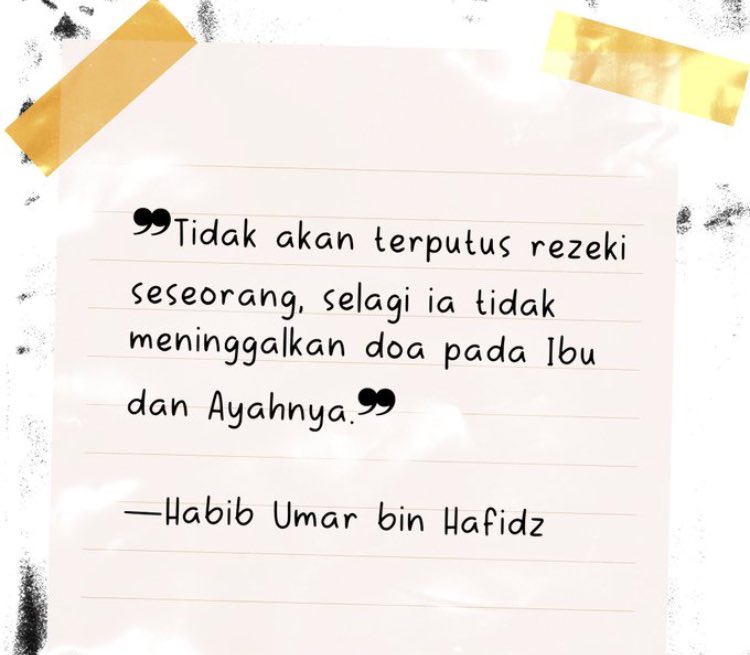 ❞Tidak akan terputus rezeki
seseorang, selagi ia tidak
meninggalkan doa pada Ibu
dan Ayahnya.❞
—Habib Umar bin Hafidz